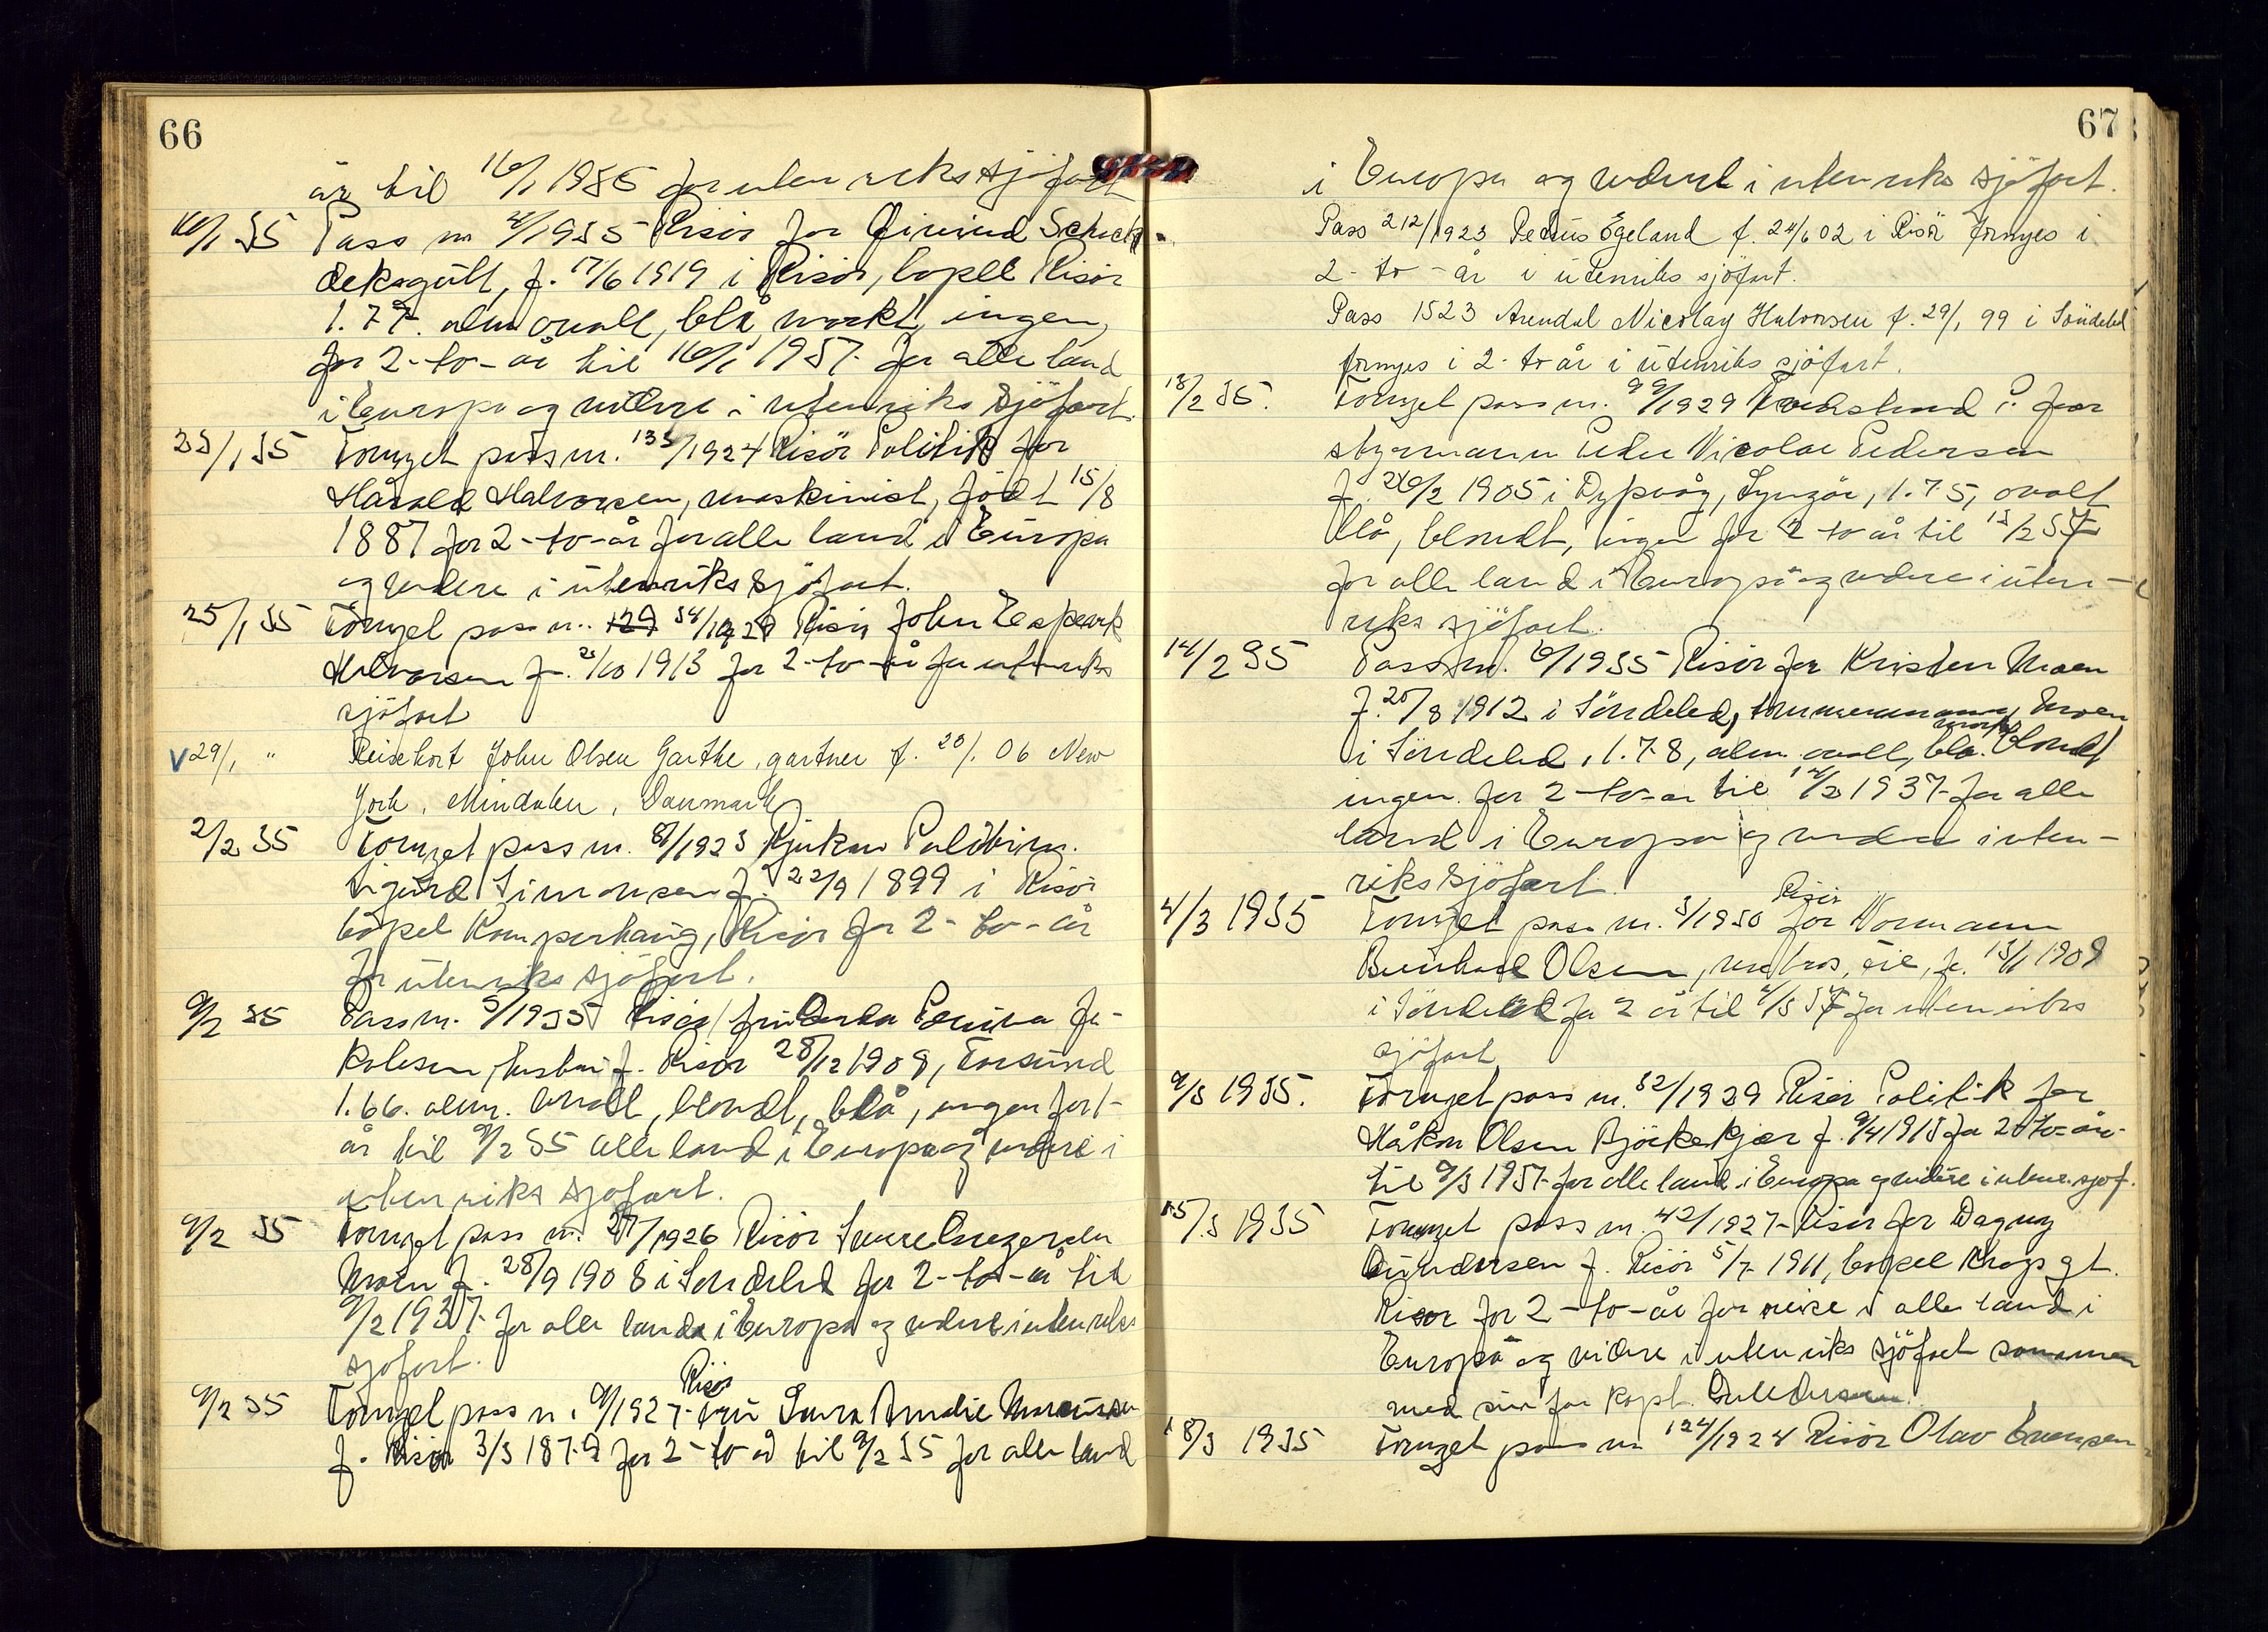 66
år til 16/1 1936 for utenriks sjøfart
16/1 35 Pass nr 4/1935 Risör for
deksgutt, f. 17/6 1919 i Risör, bopel Risör
1.77. alm ovalt, blå, mørkt, ingen,
for 2-to-år til 16/1 1937 for alle land
i Europa og videre i utenriks sjöfart.
23/1 35 Fornyet pass nr. 133/1924 Risör Politik for
Harald Halvorsen, maskinist, född 15/8
1887 for 2-to-år for alle land i Europa
og videre i utenriks sjöfart.
25/1 35 Fornyet pass nr. 34/1929 Risör John
Halvorsen f. 1913 for 2-to-år for utenriks
sjöfart
V 29/1 " Reisekort John Olsen Garthe, gartner f. 20/1 06 New
York, Danmark
2/2 35 Fornyet pass nr. 8/1923 Rjukan
Sigurd Simonsen f. 22/9 1899 i Risör
bopel Kamperhaug, Risör for 2-to-år
for utenriks sjöfart.
9/2 35 Pass nr. 5/1935 Risör fru
f. Risör 28/12 1908,
1.66. alm. ovalt, blondt, blå, ingen for 1-
år til 9/2 35 alle land i Europa og videre i
utenriks sjöfart.
9/2 35 Fornyet pass nr. 27/1926 Risör
Moen f. 28/9 1908 i Søndeled for 2-to-år til
9/2 1937 for alle land i Europa og videre i utenriks
sjöfart.
Risör
9/2 35 Fornyet pass nr. 9/1927 fru Laura Amalie
f. Risör 3/3 1879 for 2-to-år til 9/2 35 for alle land
67
i Europa og videre i utenriks sjöfart.
Pass 212/1923 Petrus Egeland f. 24/6 02 i Risör fornyes i
2-to-år i utenriks sjöfart.
Pass 1523 Arendal Nicolay Halvorsen f. 29/1 99 i Söndeled
fornyes i 2-to år i utenriks sjöfart.
13/2 35. Fornyet pass nr. 99/1929 for
styrmann Peder Nicolai Pedersen
f. 26/2 1905 i Dypvåg, Lyngör, 1.75, ovalt
blå, blondt, ingen for 2 to år til 13/2 37
for alle land i Europa og videre i uten-
riks sjöfart.
14/2 35 Pass nr. 6/1935 Risör for Kristen Moen
f. 20/8 1912 i Söndeled, tømmermann, Moen
mørk
i Söndeled, 1.78, alm. ovalt, blå. blondt
ingen. for 2-to-år til 14/2 1937 for alle
land i Europa og videre i uten-
riks sjöfart.
Risör
4/3 1935 Fornyet pass nr. 3/1930 for Normann
Olsen, f. 13/1 1909
i Söndeled for 2 år til 4/3 37 for utenriks
sjöfart
9/3 1935. Fornyet pass nr. 32/1929 Risör Politik for
Håkon Olsen Björkekjær f. 9/4 1915 for 2 to-år
til 9/3 1937 for alle land i Europa og videre i utenr. sjøf.
15/3 1935 Fornyet pass nr. 42/1927 Risör for Dagny
Gundersen f. Risör 5/7 1911, bopel Krags gt.
Risör for 2-to-år for reise i alle land i
Europa og videre i utenriks sjöfart sammen
med sin far kapt. Gundersen.
18/3 1935 Fornyet pass nr 124/1924 Risör Olav Evensen